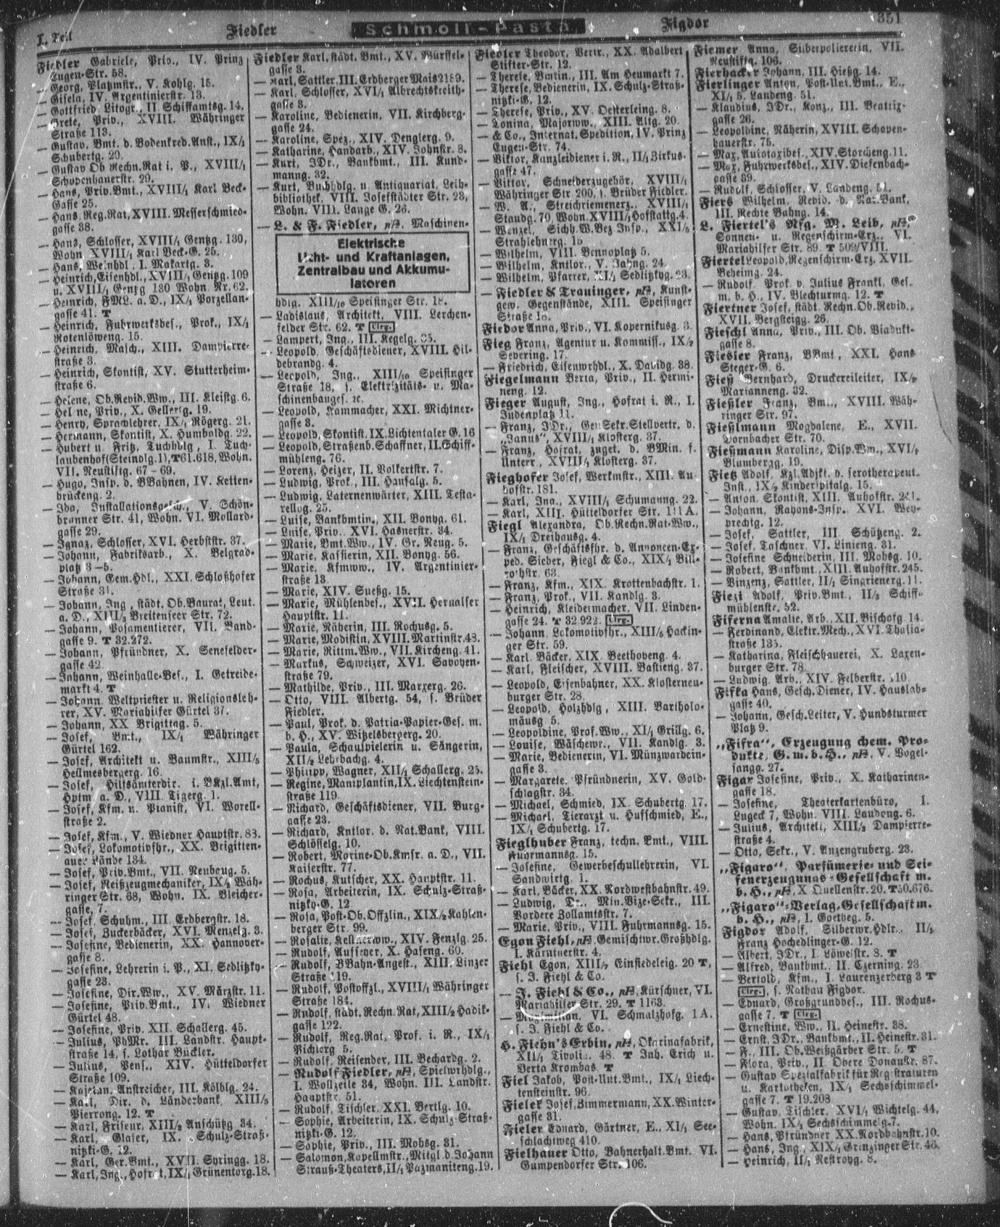 I. Teil
Fiedler
Schmoll-Pasta
Figdor
351
Fiedler Gabriele, Priv., IV. Prinz
Eugen-Str. 58.
— Georg, Platzmstr., V. Kohlg. 15.
— Gisela, IV. Argentinierstr. 13.
— Gottfried, Lithogr., II. Schiffamtsg. 14.
— Grete, Priv., XVIII. Währinger
Straße 113.
— Gustav, Bmt. d. Bodenkred.Anst., IX/1
Schubertg. 20.
— Gustav Ob Rechn.Rat i. P., XVIII/1
Schopenhauerstr. 29.
— Hans, Priv.Bmt., XVIII/1 Karl Beck-
Gasse 25.
— Hans, Reg.Rat, XVIII. Messerschmied-
gasse 38.
— Hans, Schlosser, XVIII/1 Gentzg. 130,
Wohn XVIII/1 Karl Beck-G. 25.
— Hans, Weinhdl., I. Makartg. 3.
— Heinrich, Eisenhdl., XVIII/1 Gentzg. 109
u. XVIII/1 Gentzg 130 Wohn Nr. 62.
— Heinrich, FML. a. D., IX/4 Porzellan-
gasse 41. T
— Heinrich, Fuhrwerksbes., Prok., IX/1
Rotenlöweng. 15.
— Heinrich, Masch., XIII. Dampierre-
straße 3.
— Heinrich, Skontist, XV. Stutterheim-
straße 6.
— Helene, Ob.Revid.Ww., III. Kleistg. 6.
— Helene, Priv., X. Gellertg. 19.
— Henry, Sprachlehrer, IX/4 Rögerg. 21.
— Hermann, Skontist, X. Humboldtg. 22.
— Hubert u. Fritz, Tuchhdlg., I. Tuch-
laubenhof (Steindlg. 1), T 61.618, Wohn.
VII. Neustiftg. 67—69.
— Hugo, Insp. d. BBahnen, IV. Ketten-
brückeng. 2.
— Ida, Installationsgesch., V. Schön-
brunner Str. 41, Wohn. VI. Mollard-
gasse 29.
— Ignaz, Schlosser, XVI. Herbststr. 37.
— Johann, Fabriksarb., X. Belgrad-
platz 3—5.
— Johann, Gem.Hdl., XXI. Schloßhofer
Straße 31.
— Johann, Ing., städt. Ob.Baurat, Leut.
a. D., XIII/3 Breitenseer Str. 72.
— Johann, Posamentierer, VII. Band-
gasse 9. T 32.272.
— Johann, Pfründner, X. Senefelder-
gasse 42.
— Johann, Weinhalle-Bes., I. Getreide-
markt 4. T
— Johann, Weltpriester u. Religionsleh-
rer, XV. Mariahilfer Gürtel 37.
— Johann, XX Brigittag. 5.
— Josef, Bmt., IX/1 Währinger
Gürtel 162.
— Josef, Architekt u. Baumstr., XIII/5
Hellmesbergerg. 16.
— Josef, Hilfsämterdir. i. BKzl.Amt,
Hptm a. D., VIII. Tigerg. 1.
— Josef, Kfm. u. Pianist, VI. Worell-
straße 2.
— Josef, Kfm., V. Wiedner Hauptstr. 83.
— Josef, Lokomotivfhr., XX. Brigitten-
auer Lände 134.
— Josef, Priv.Bmt., VII. Neubaug. 5.
— Josef, Reißzeugmechaniker, IX/4 Wäh-
ringer Str. 68, Wohn. IX. Bleicher-
gasse, 7.
— Josef, Schuhm., III. Erdbergstr. 18.
— Josef, Zuckerbäck, XVI. Menzelg. 3.
— Josefine, Bedienerin, XX. Hannover-
gasse 8.
— Josefine, Lehrerin i. P., XI. Sedlitzky-
gasse 23.
— Josefine, Dir.Ww., XV. Märzstr. 11.
— Josefine, Priv.Bmt., IV. Wiedner
Gürtel 48.
— Josefine, Priv. XII. Schallerg. 45.
— Julius, PbMr. III. Landstr. Haupt-
straße 14, s. Lothar Bückler.
— Julius, Pens., XIV. Hütteldorfer
Straße 109.
— Kajetan, Anstreicher, III. Kölblg. 24.
— Karl, Dir. d. Länderbank, XIII/5
Pierrong. 12. T
— Karl, Friseur, XIII/2 Anschützg. 34.
— Karl, Glaser, IX. Schulz-Straß-
nitzki-G. 12.
— Karl, Ger.Bmt., XVIII. Syringg. 18.
— Karl, Ing., Hofrat, IX/4 Grünentorg. 18.
Fiedler Karl, städt. Bmt., XV. Würffel-
gasse 3.
— Karl, Sattler, III. Erdberger Mais 2159.
— Karl, Schlosser, XVI/1 Albrechtskreith-
gasse 3.
— Karoline, Bedienerin, VII. Kirchberg-
gasse 24.
— Karoline, Spez., XIV. Denglerg. 9.
— Katharine, Handarb., XIV. Johnstr. 8.
— Kurt, JDr., Bankbmt., III. Kund-
manng. 32.
— Kurt, Buchhdlg. u. Antiquariat, Leih-
bibliothek, VIII. Josefstädter Str. 23,
Wohn. VIII. Lange G. 26.
— L. & F. Fiedler, pr., Maschinen-
Elektrische
Licht- und Kraftanlagen,
Zentralbau und Akkumu-
latoren
hdlg. XIII/10 Speisinger Str. 18.
— Ladislaus, Architekt, VIII. Lerchen-
felder Str. 62. T Clrg.
— Lampert, Ing., III. Kegelg. 35.
— Leopold, Geschäftsdiener, XVIII. Hil-
debrandg. 4.
— Leopold, Ing., XIII/10 Speisinger
Straße 18, s. Elektrizitäts- u. Ma-
schinenbauges.
— Leopold, Kammacher, XXI. Michtner-
gasse 3.
— Leopold, Skontist, IX. Lichtentaler G. 16
— Leopold, Straßenb.Schaffner, II. Schiff-
mühleng. 76.
— Lorenz, Heizer, II. Volkertstr. 7.
— Ludwig, Prok., III. Hansalg. 5.
— Ludwig, Laternenwärter, XIII. Testa-
rellog. 25.
— Luise, Bankbmtin., XII. Bonyg. 61.
— Luise, Priv. XVI. Hasnerstr. 34.
— Marie, Bmt.Ww., IV. Gr. Neug. 5.
— Marie, Kassierin, XII. Bonyg. 56.
— Marie, Kfmww., IV. Argentinier-
straße 13.
— Marie, XIV. Sueßg. 15.
— Marie, Mühlenbes., XVII. Hernalser
Hauptstr. 11.
— Marie, Näherin, III. Rochusg. 5.
— Marie, Modistin, XVIII. Martinstr. 43.
— Marie, Rittm.Ww., VII. Kircheng. 41.
— Markus, Schweizer, XVI. Savoyen-
straße 79.
— Mathilde, Priv., III. Marxerg. 26.
— Otto, VIII. Albertg. 54, s. Brüder
Fiedler.
— Paul, Prok. d. Patria-Papier-Ges. m.
b. H., XV. Witzelsbergerg. 20.
— Paula, Schauspielerin u. Sängerin,
XII/2 Lehrbachg. 4.
— Philipp, Wagner, XII/1 Schallerg. 25.
— Regine, Maniplantin, IX. Liechtenstein-
straße 119.
— Richard, Geschäftsdiener, VII. Burg-
gasse 23.
— Richard, Kntlor. d. Nat.Bank, VIII.
Schlösselg. 10.
— Robert, Marine-Ob.Kmsr. a. D., VII.
Kaiserstr. 77.
— Rochus, Kutscher, XX. Hauptstr. 11.
— Rosa, Arbeiterin, IX. Schulz-Straß-
nitzky-G. 12
— Rosa, Post-Ob.Offzlin., XIX/2 Kahlen-
berger Str. 99.
— Rosalie, Kellnerww., XIV. Fenzlg. 25.
— Rudolf, Aufseher, X. Haseng. 60.
— Rudolf, BBahn-Angest., XIII. Linzer
Straße 19.
— Rudolf, Postoffzl., XVIII/1 Währinger
Straße 184.
— Rudolf, städt. Rechn.Rat, XIII/2 Hadik-
gasse 122.
— Rudolf, Reg.Rat, Prof. i. R., IX/1
Pichlerg 5.
— Rudolf, Reisender, III. Bechardg. 2.
— Rudolf Fiedler, pr., Spielwrhdlg.,
I. Wollzeile 34, Wohn. III. Landstr.
Hauptstr. 51.
— Rudolf, Tischler, XXI. Bertlg. 10.
— Sophie, Arbeiterin, IX. Schulz-Straß-
nitzki-G. 12.
— Sophie, Priv., III. Mohsg. 31.
— Salomon, Kopellmstr., Mitgl. d. Johann
Strauß-Theaters, II/1 Pazmaniteng. 19.
Fiedler Theodor, Vertr., XX. Adalbert
Stifter-Str. 12.
— Therese, Bmtin., III. Am Heumarkt 7.
— Therese, Bedienerin, IX. Schulz-Straß-
nitzki-G. 12.
— Therese, Priv., XV. Oelterleing. 8.
— Tonina, Majorww., XIII. Allg. 20.
— & Co., Internat.Spedition, IV. Prinz
Eugen-Str. 74.
— Viktor, Kanzleidiener i. R., II/1 Zirkus-
gasse 47.
— Viktor, Schneiderzugehör, XVIII/1
Währinger Str. 200, s. Brüder Fiedler.
— W. A., Streichriemenerz., XVIII/1
Standtg. 70, Wohn. XVIII/1 Hofstattg. 4.
— Wenzel, Sichh.W.Bez Insp., XXI/1
Strahlehnerg. 15
— Wilhelm, VIII. Bennoplatz 5.
— Wilhelm, Kntlor., V. Jahng. 24.
— Wilhelm, Pfarrer, XI. Sedlitzkyg. 23.
— Fiedler & Trauninger, pr., Kunst-
gew. Gegenstände, XIII. Speisinger
Straße 10.
Fiedor Anna, Priv., VI. Kopernikusg. 3.
Fieg Franz, Agentur u. Kommiss., IX/2
Severing. 17.
— Friedrich, Eisenwrhdl., X. Davidg. 38.
Fiegelmann Berta, Priv., II. Hermi-
neng. 12.
Fieger August, Ing., Hofrat i. R., I.
Judenplatz 11.
— Franz, JDr., Gen Sekr.Stellvertr. d.
„Janus", XVIII/1 Klosterg. 37.
— Franz, Hofrat, zuget. d. BMin. f.
Unterr., XVIII/1 Klosterg. 37.
Fieghofer Josef, Werkmstr., XIII. Au-
hofstr. 181.
— Karl, Ing., XVIII/1 Schumanng. 22.
— Karl, XIII. Hütteldorfer Str. 111A.
Fiegl Alexandra, Ob.Rechn.Rat-Ww.,
IX/4 Dreihausg. 4.
— Franz, Geschäftsfhr. d. Annoncen-Ex-
ped. Sieder, Fiegl & Co., XIX/1 Bill-
rothstr. 63.
— Franz, Kfm., XIX. Krottenbachstr. 1.
— Franz, Prok., VII. Kandlg. 3.
— Heinrich, Kleidermacher, VII. Linden-
gasse 24. T 32.922. Clrg.
— Johann, Lokomotivfhr., XIII/5 Hackin-
ger Str. 59.
— Karl, Bäcker, XIX. Beethoveng. 4.
— Karl, Fleischer, XVIII. Bastieng. 37.
— Leopold, Eisenbahner, XX. Klosterneu-
burger Str. 28.
— Leopold, Holzhdlg., XIII. Bartholo-
mäusg 5.
— Leopoldine, Prof.Ww., XI/1 Grillg. 6.
— Louise, Wäschewr., VII. Kandlg. 3.
— Marie, Bedienerin, VI. Münzwardein-
gasse 3.
— Margarete, Pfründnerin, XV. Gold-
schlagstr. 34.
— Michael, Schmied, IX. Schubertg. 17.
— Michael, Tierarzt u. Hufschmied, E.,
IX/1 Schubertg. 17.
Fieglhuber Franz, techn. Bmt., VIII.
Fuhrmannsg. 15.
— Josefine, Gewerbeschullehrerin, VI.
Sandwirtg. 1.
— Karl, Bäcker, XX. Nordwestbahnstr. 49.
— Ludwig, Dr., Min.Vize-Sekr., III.
Vordere Zollamtsstr. 7.
— Marie, Priv., VIII. Fuhrmannsg. 15.
Egon Fiehl, pr., Gemischtwr.Großhdlg.
I. Kärntnerstr. 4.
Fiehl Egon, XIII/1 Einsiedeleig. 20 T,
s. J. Fiehl & Co.
— J. Fiehl & Co., pr., Kürschner, VI.
Mariahilfer Str. 29. T 1163.
— Maximilian, VI. Schmalzhofg. 1A.
s. J. Fiehl & Co.
H. Fiehn's Erbin, pr., Okarinafabrik,
XII/1 Tivolig. 48. T Inh. Erich u.
Berta Krombas T
Fiel Jakob, Post-Unt.Bmt., IX/1 Liech-
tensteinstr. 96.
Fieler Josef, Zimmermann, XX. Winter-
gasse 31.
Fieler Eduard, Gärtner, E., XI/1 See-
schlachtweg 410.
Fielhauer Otto, Bahnerhalt.Bmt. VI.
Gumpendorfer Str. 106.
Fiemer Anna, Silberpoliererin, VII.
Neustiftg. 106.
Fierhacker Johann, III. Hießg. 14.
Fierlinger Anton, Post-Unt.Bmt., E.,
XI/5 Landeng. 51.
— Klaudius, JDr., Konz., III. Beatrix-
gasse 26.
— Leopoldine, Näherin, XVIII. Schopen-
hauerstr. 75.
— Max, Autotaxibes., XIV. Storcheng. 11.
— Max, Fuhrwerksbes., XIV. Diefenbach-
gasse 59.
— Rudolf, Schlosser, V. Landeng. 51.
Fiers Wilhelm, Revid. d. Nat.Bank,
III. Rechte Bahng. 14.
L. Fiertel's Nfg. M. Leib, pr.,
Sonnen- u. Regenschirm-Erz., VI.
Mariahilfer Str. 89. T 509/VIII.
Fiertel Leopold, Regenschirm-Erz. XVII.
Beheimg. 24.
— Rudolf, Prok. v. Julius Frankl, Ges.
m. b. H., IV. Blechturmg. 12. T
Fiertner Josef, städt. Rechn.Ob.Revid.,
XVII. Bergsteigg. 26.
Fieschl Anna, Priv., III. Ob. Viadukt-
gasse 8.
Fiesler Franz, BBmt., XXI. Hans
Steger-G. 6.
Fieß Bernhard, Druckereileiter, IX/2
Marianneng. 32.
Fießler Franz, Bmt., XVIII. Wäh-
ringer Str. 97.
Fießlmann Magdalene, E., XVII.
Dornbacher Str. 70.
Fießmann Karoline, Disp.Ww., XVI/1
Blumbergg. 19.
Fietz Adolf, Kzl.Adjkt. d. serotherapeut.
Inst., IX/2 Kinderspitalg. 15.
— Anton, Skontist, XIII. Auhofstr. 241.
— Johann, Rayons-Insp., XVI. Wey-
prechtg. 12.
— Josef, Sattler, III. Schützeng. 2.
— Josef, Taschner, VI. Linieng. 31.
— Josefine, Schneiderin, III. Mohsg. 10.
— Robert, Bankbmt., XIII. Auhofstr. 245.
— Vinzenz, Sattler, II/1 Springerg. 11.
Fiezl Adolf, Priv.Bmt., II/1 Schiff-
mühlenstr. 52.
Fiferna Amalie, Arb., XII. Bischofg. 14.
— Ferdinand, Elektr.Mech., XVI. Thalia-
straße 135.
— Katharina, Fleischhauerei, X. Laxen-
burger Str. 78.
— Ludwig, Arb., XIV. Felberstr. 10.
Fifka Hans, Gesch.Diener, IV. Hauslab-
gasse 40.
— Johann, Gesch.Leiter, V. Hundsturmer
Platz 9.
„Fifra", Erzeugung chem. Pro-
dukte, G. m. b. H., pr., V. Vogel-
sangg. 27.
Figar Josefine, Priv., X. Katharinen-
gasse 18.
— Josefine, Theaterkartenbüro, I.
Lugeck 7, Wohn. VIII. Laudong. 6.
— Julius, Architekt, XIII/5 Dampierre-
straße 4.
— Otto, Sekr., V. Anzengruberg. 23.
„Figaro", Parfümerie- und Sei-
fenerzeugungs-Gesellschaft m.
b. H., pr., X. Quellenstr. 20. T 50.676.
„Figaro"-Verlag, Gesellschaft m.
b. H., pr., I. Goetheg. 5.
Figdor Adolf, Silberwr.Hdlr., II/1
Franz Hochedlinger-G. 12.
— Albert, JDr., I. Löwelstr. 8. T
— Alfred, Bankbmt., II. Czerning. 23
— Bertold, Kfm., I. Laurenzerberg 3 T
Clrg., s. Nathan Figdor.
— Eduard, Großgrundbes., III. Rochus-
gasse 7. T Clrg.
— Ernestine, Ww., II. Heinestr. 38.
— Ernst, JDr., Bankbmt., II. Heinestr. 31.
— F., III. Ob. Weißgärber Str. 5. T
— Flora, Priv., II. Obere Donaustr. 87.
— Gustav, Spezialfabrik für Registraturen
u. Kartotheken, IX/4 Sechsschimmel-
gasse 7. T 19.208.
— Gustav, Tischler, XVI/1 Wichtelg. 44,
Wohn. IX/4 Sechsschimmelg. 7.
— Hans, Pfründner XX. Nordbahnstr. 10.
— Hans, Ing., XIX/4 Grinzinger Str. 46.
— Heinrich, II/1 Nestroyg. 8.